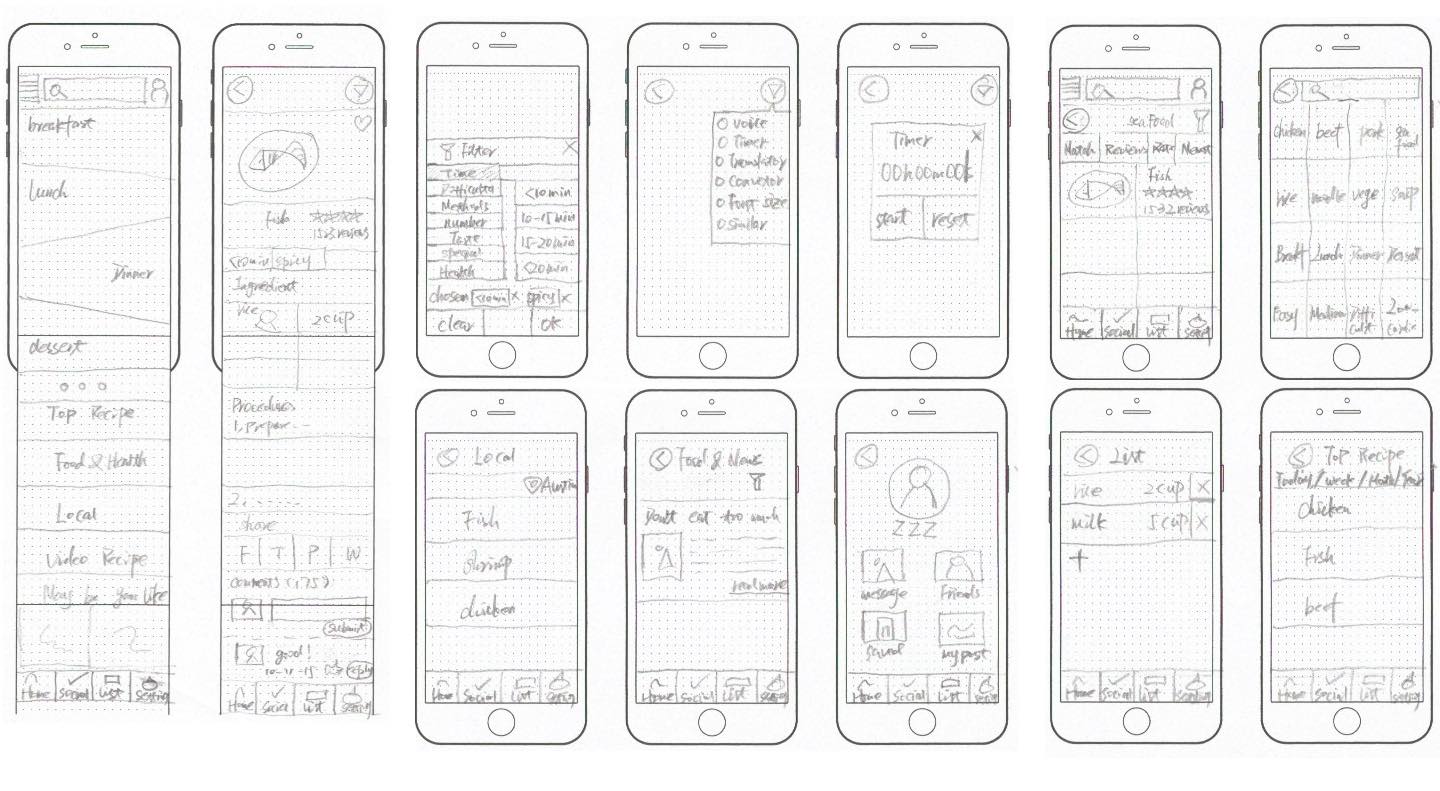 breakfast
Lunch
Dinner
dessert
Top Recipe
Food & Health
Local
Video Recipe
May be you like
Home Social List Setting
Fish
1523 reviews
<10min spicy
Ingredient
rice 2cup
Procedures
1. prepare...
2. ......
share
F T P W
comments (175)
submit
good!
10-11-15 Reply
Home Social List Setting
Filter X
Time
Methods
number
Taste
special
Health
<10min
10-15 min
15-20min
<20min
chosen <10min X spicy X
clear OK
voice
Timer
Translator
Convetor
Font size
similar
Timer X
00h00m00s
start reset
sea Food
Match Reviews Rate Newst
Fish
1532 reviews
Home Social List Setting
chicken beef pork sea food
rice noodle vege soup
Breakf Lunch Dinner Dessert
Easy Medium
Local
Austin
Fish
shrimp
chicken
Home Social List Setting
Food & News
Don't eat too much
read more
Home Social List Setting
ZZZ
message Friends
saved my post
Home Social List Setting
List
rice 2cup X
milk 5cup X
+
Home Social List Setting
Top Recipe
Today/week/Month/Year
chicken
Fish
beef
Home Social List Setting